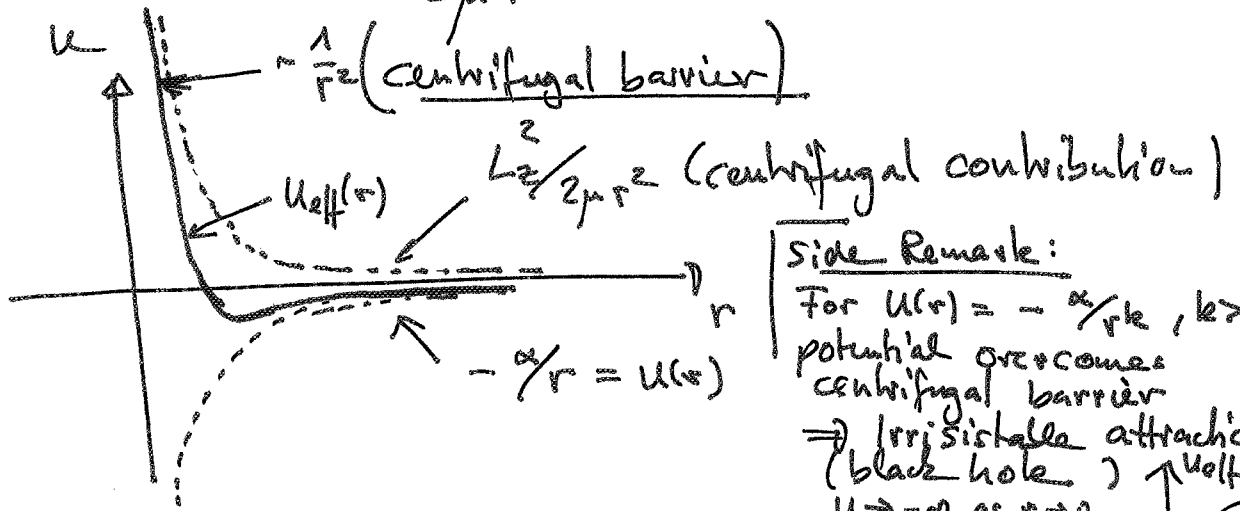 U
~ 1/r² (centrifugal barrier)
L_z²/2μr² (centrifugal contribution)
U_eff(r)
r
-α/r = U(r)
Side Remark:
For U(r) = - α/r^k , k>
potential overcomes
centrifugal barrier
⇒ Irrisistable attractio
(black hole) ↑ U_eff
U→-∞ as r→0